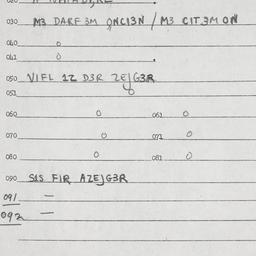 030 M3 DARF 3M ONCI3N / M3 CIT 3M ON
040 o
041 o
050 VIFL 1Z D3R ZEJG3R
051 o
060 o 061 o
070 o 071 o
080 o 081 o
090 S1S FIR AZEJG3R
091 —
092 —